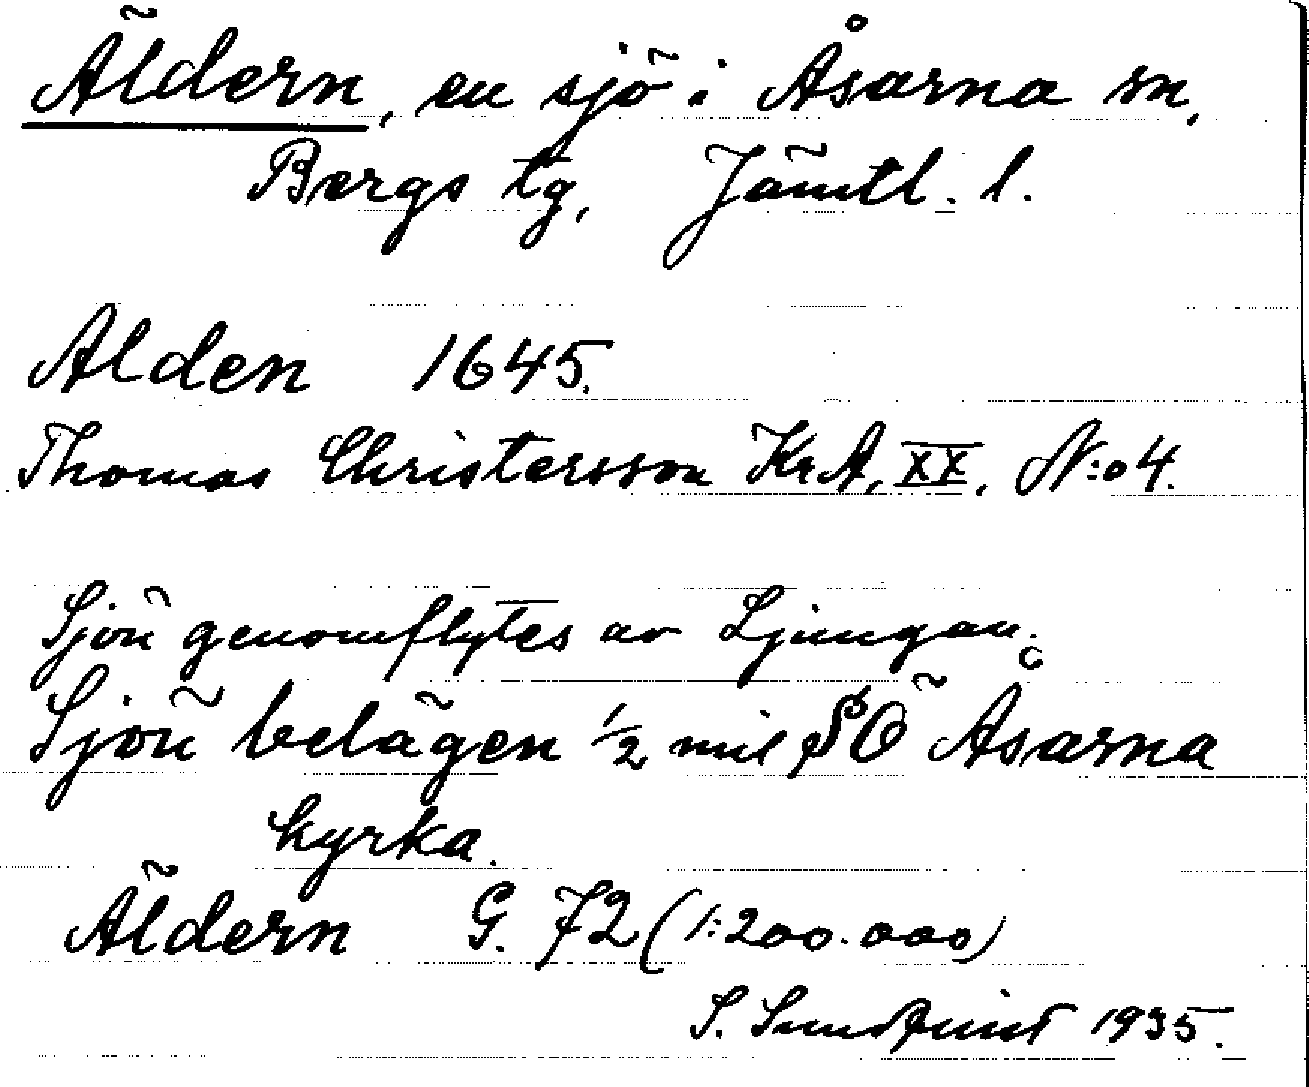 Äldern, en sjö i Åsarna sn,
Bergs tg, Jämtl. l.
Alden 1645.
Thomas Christersson Kr.A, XX, N:o 4.
Sjön genomflytes av Ljungan.
Sjön belägen 1/2 mil SÖ Åsarna
kyrka.
Äldern G. 72 (1:200.000)
S. Sundquist 1935.